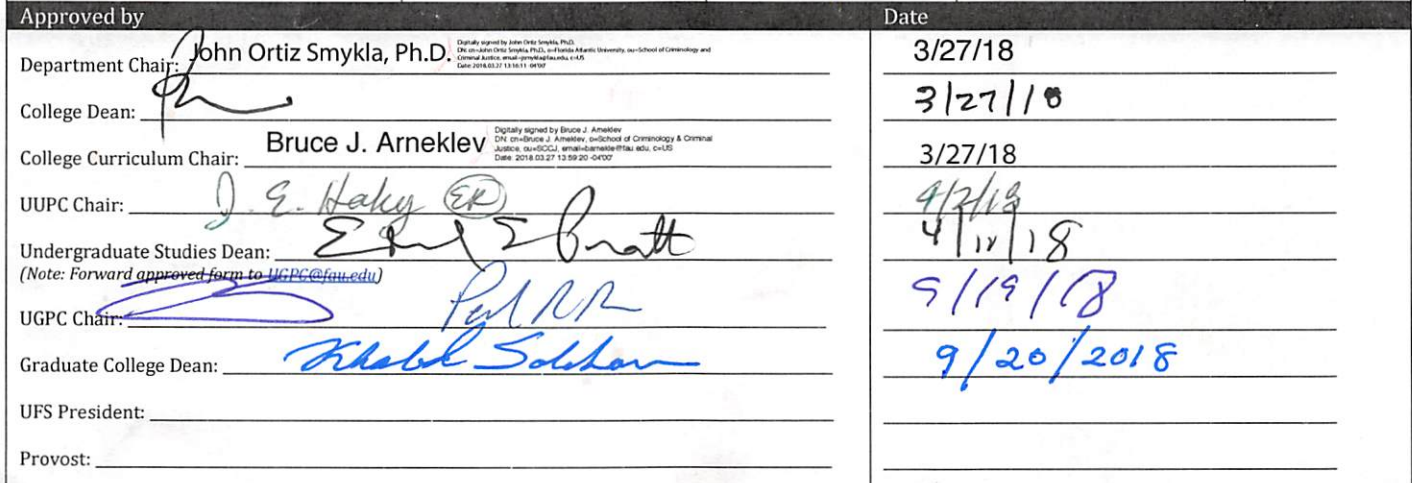 Approved by Date
Department Chair: John Ortiz Smykla, Ph.D. Digitally signed by John Ortiz Smykla, Ph.D. 3/27/18
DN: cn=John Ortiz Smykla, Ph.D., o=Florida Atlantic University, ou=School of Criminology and
Criminal Justice, email=jsmykla@fau.edu, c=US
Date: 2018.03.27 13:16:11 -04'00'
College Dean: 3/27/18
College Curriculum Chair: Bruce J. Arneklev Digitally signed by Bruce J. Arneklev 3/27/18
DN: cn=Bruce J. Arneklev, o=School of Criminology & Criminal
Justice, ou=SCCJ, email=barnekle@fau.edu, c=US
Date: 2018.03.27 13:59:20 -04'00'
UUPC Chair: J. E. Haky ER 4/2/18
Undergraduate Studies Dean: Pratt 4/12/18
(Note: Forward approved form to UGPC@fau.edu)
UGPC Chair: 9/19/18
Graduate College Dean: 9/20/2018
UFS President:
Provost: